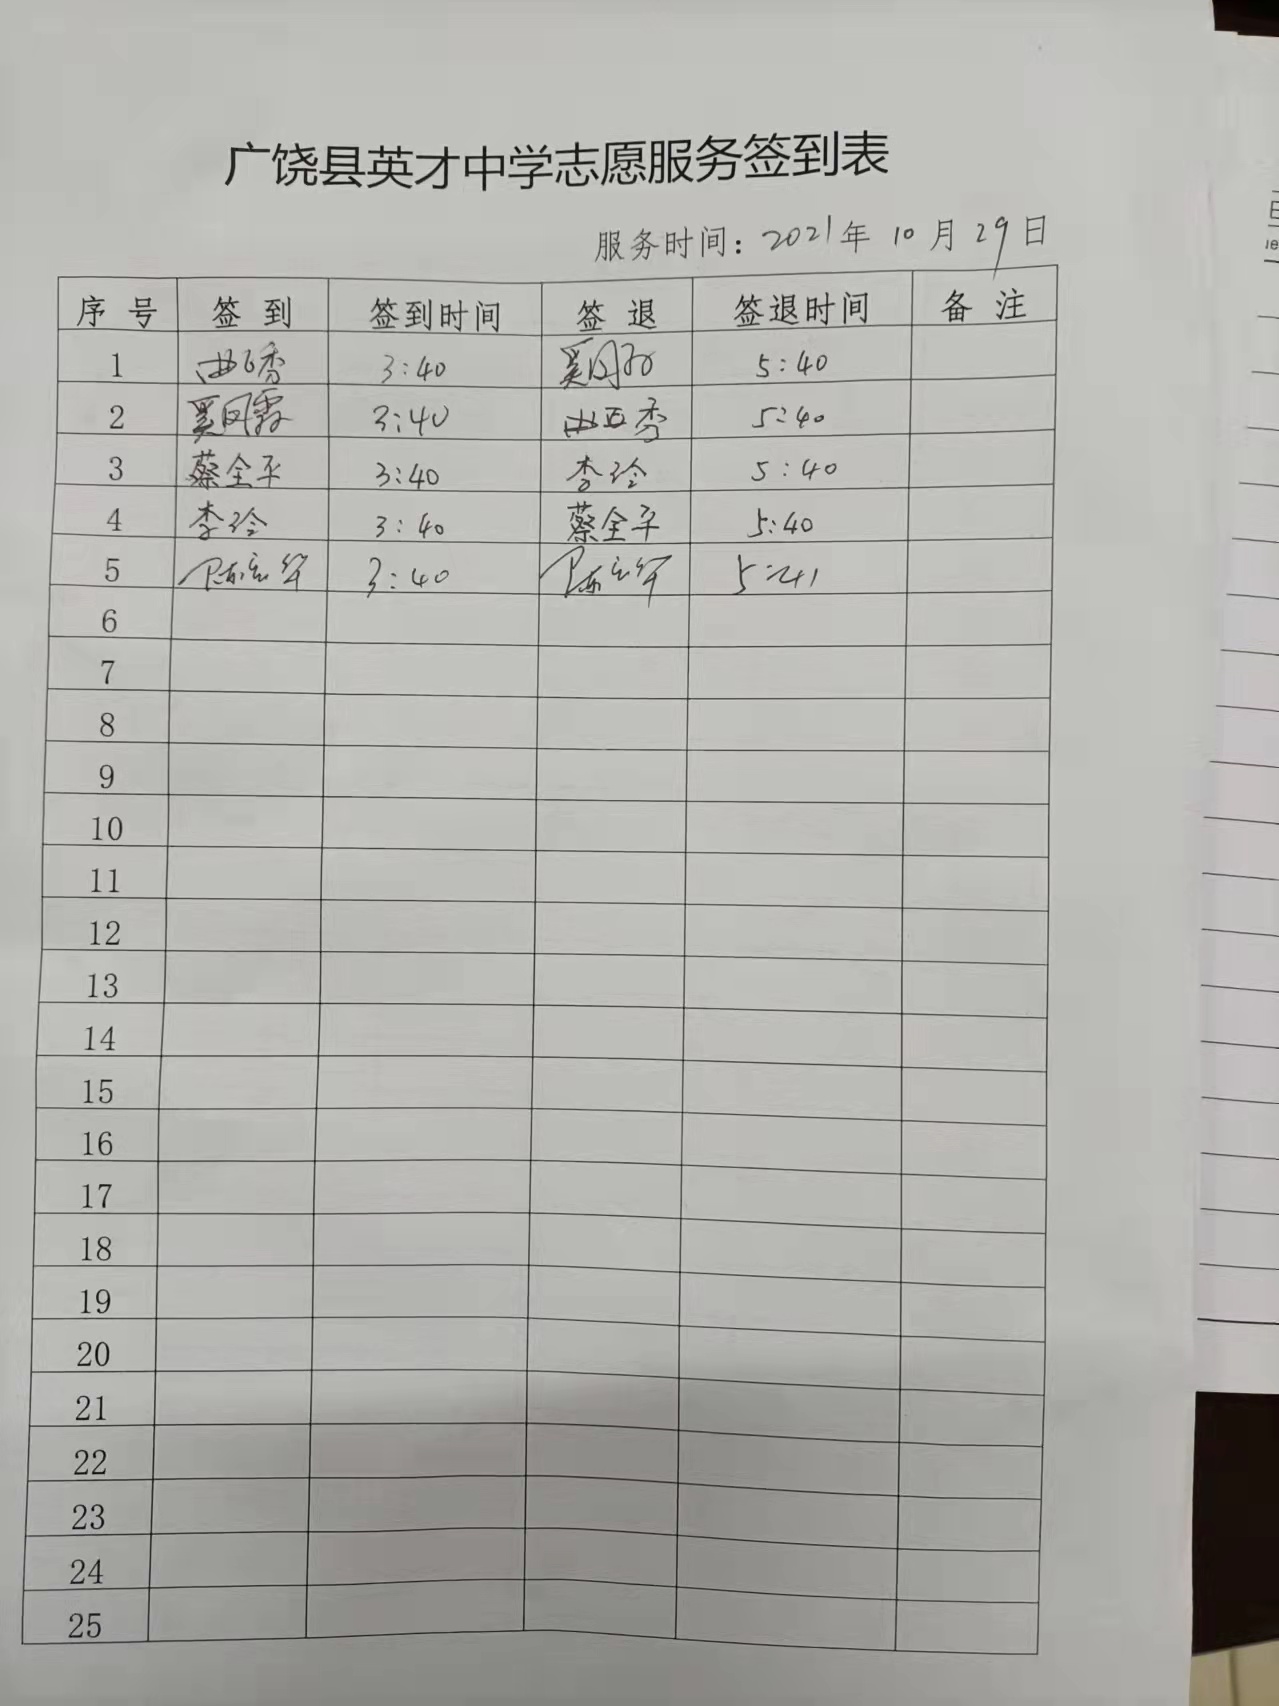 广饶县英才中学志愿服务签到表
服务时间：2021年 10 月 29 日
序 号 签 到 签到时间 签 退 签退时间 备 注
1 3:40 5:40
2 3:40 5:40
3 蔡全平 3:40 李玲 5:40
4 李玲 3:40 蔡全平 5:40
5 3:40 5:41
6
7
8
9
10
11
12
13
14
15
16
17
18
19
20
21
22
23
24
25